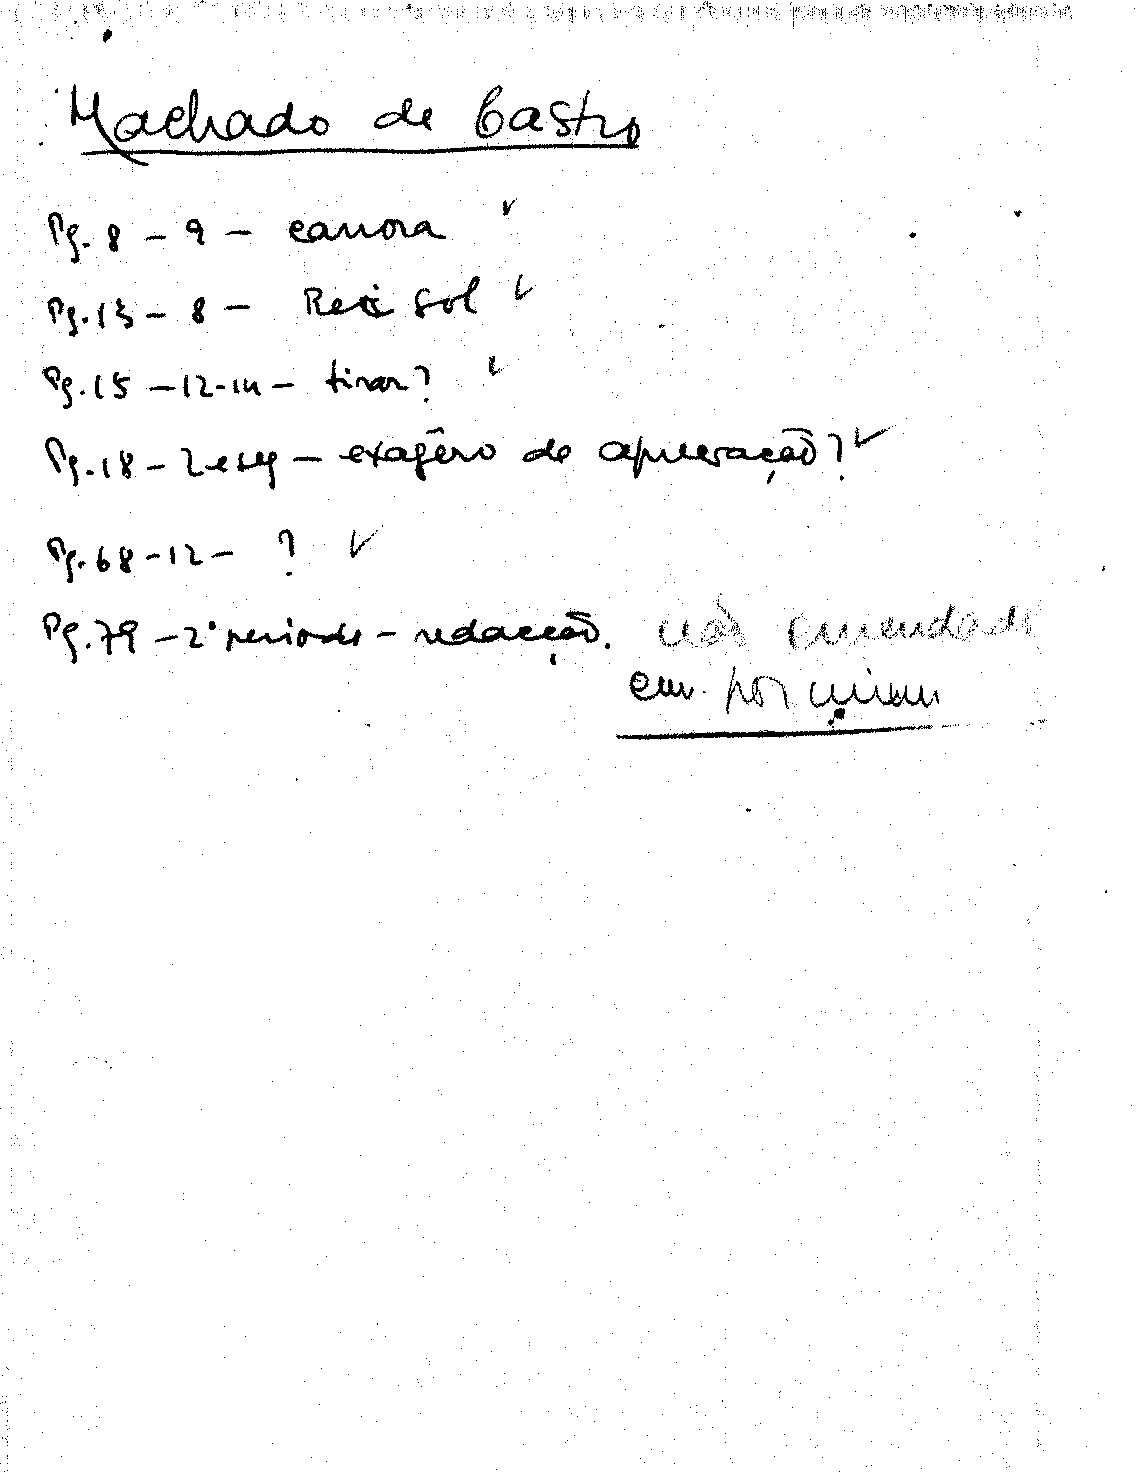 Machado de Castro
Pg. 8 - 9 - canora ✓
Pg. 13 - 8 - Rei Sol ✓
Pg. 15 - 12 - 14 - tirar? ✓
Pg. 18 - 2 e seg - exagêro de apreciação? ✓
Pg. 68 - 12 - ? ✓
Pg. 79 - 2º período - redacção. não emendado
por mim